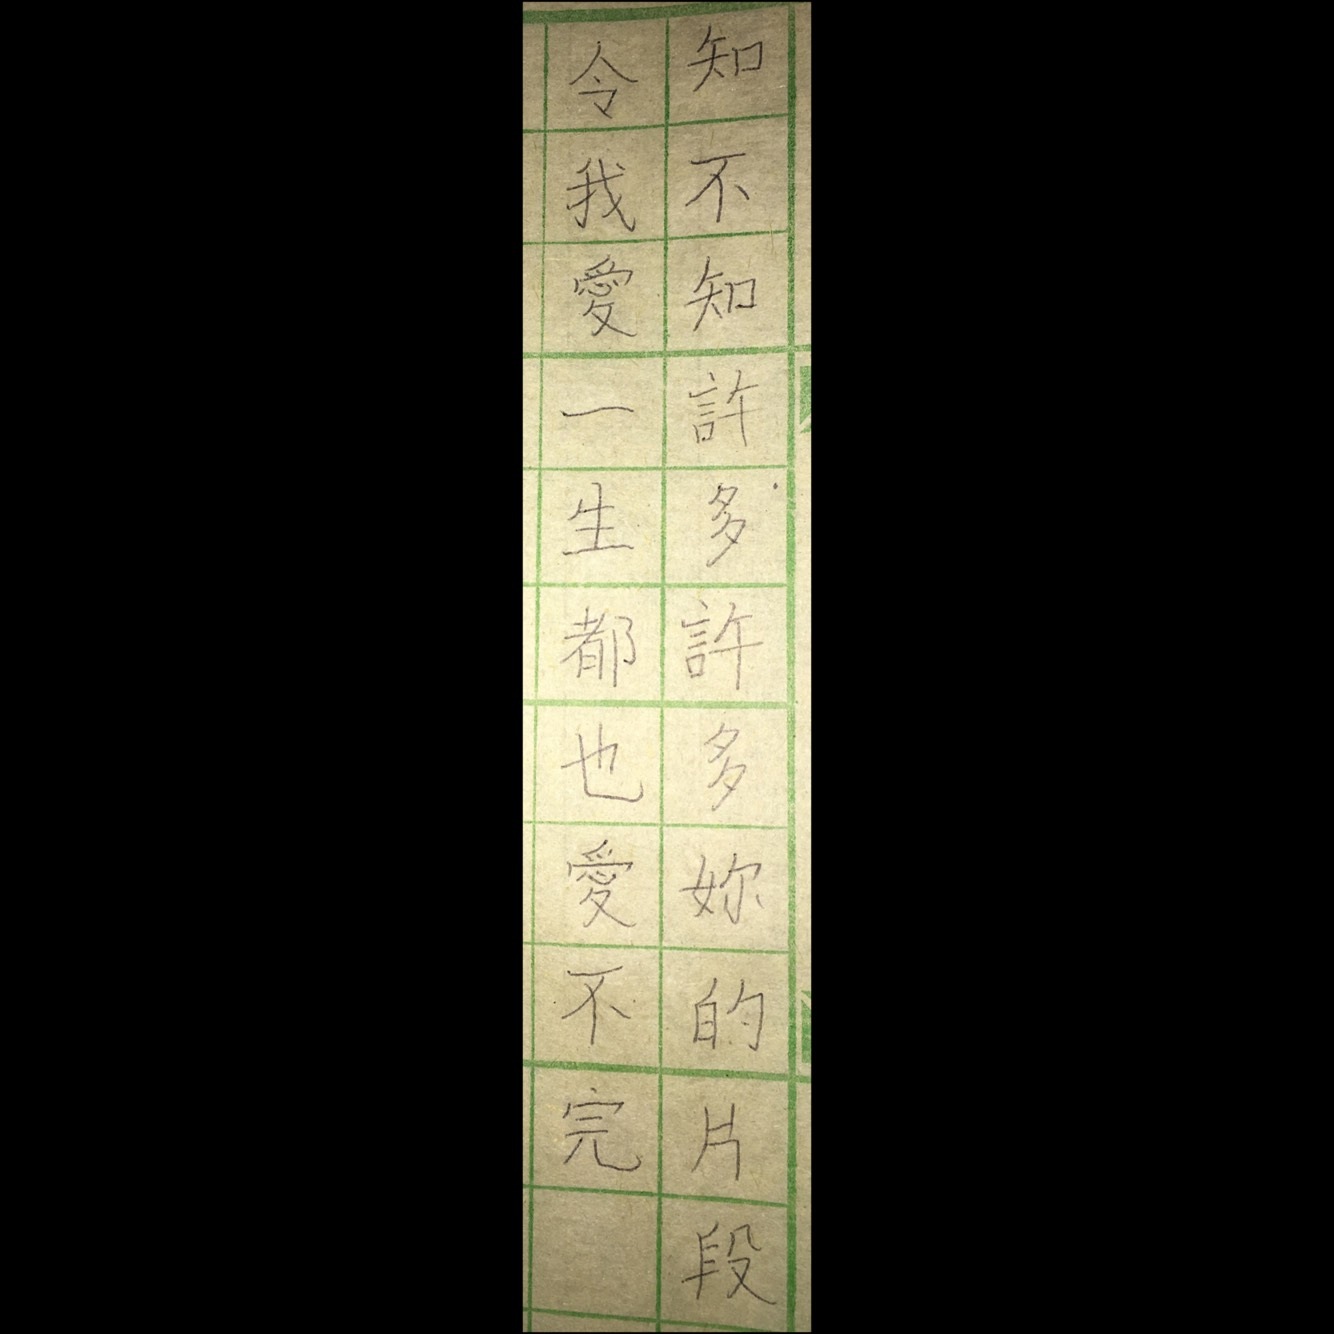 知不知許多許多妳的片段
令我愛一生都也愛不完